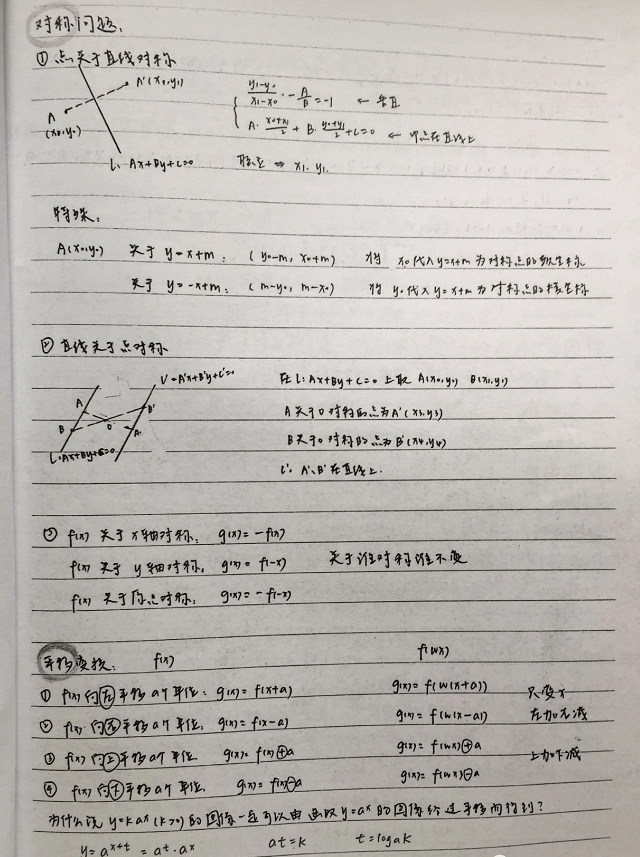 对称问题:
① 点关于直线对称
A'(x₁,y₁)
A
(x₀,y₀)
l: Ax+By+C=0
(y₁-y₀)/(x₁-x₀) · -A/B = -1 ← 垂直
A·(x₀+x₁)/2 + B·(y₀+y₁)/2 + C=0 ← 中点在直线上
联立 ⇒ x₁. y₁.
特殊:
A(x₀,y₀) 关于 y=x+m: (y₀-m, x₀+m) 将 x₀代入y=x+m 为对称点的纵坐标
关于 y=-x+m: (m-y₀, m-x₀) 将 y₀代入 y=x+m 为对称点的横坐标
② 直线关于点对称
l'=A'x+B'y+C'=0
A
B
O
B'
A'
l:Ax+By+C=0
在 l: Ax+By+C=0 上取 A(x₀,y₀) B(x₁,y₁)
A关于O对称的点为A'(x₃,y₃)
B关于O对称的点为B'(x₄,y₄)
l': A'、B'在直线上.
③ f(x) 关于 x轴对称: g(x)=-f(x)
f(x) 关于 y轴对称: g(x)=f(-x) 关于谁对称谁不变
f(x) 关于原点对称: g(x)=-f(-x)
平移变换: f(x) f(wx)
① f(x) 向左平移a个单位: g(x)=f(x+a) g(x)=f(w(x+a)) 只变x
② f(x) 向右平移a个单位: g(x)=f(x-a) g(x)=f(w(x-a)) 左加右减
③ f(x) 向上平移a个单位 g(x)=f(x)⊕a g(x)=f(wx)⊕a 上加下减
④ f(x) 向下平移a个单位. g(x)=f(x)⊖a g(x)=f(wx)⊖a
为什么说 y=kaˣ(k>0)的图像一定可以由函数y=aˣ的图像经过平移而得到?
y=aˣ⁺ᵗ=aᵗ·aˣ aᵗ=k t=logₐk